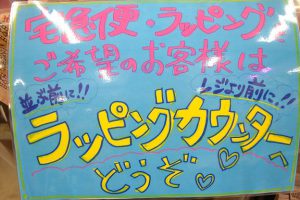 宅急便・ラッピングを
ご希望のお客様は
並ぶ前に!!
レジより前に!!
ラッピングカウンターへ
どうぞ♡